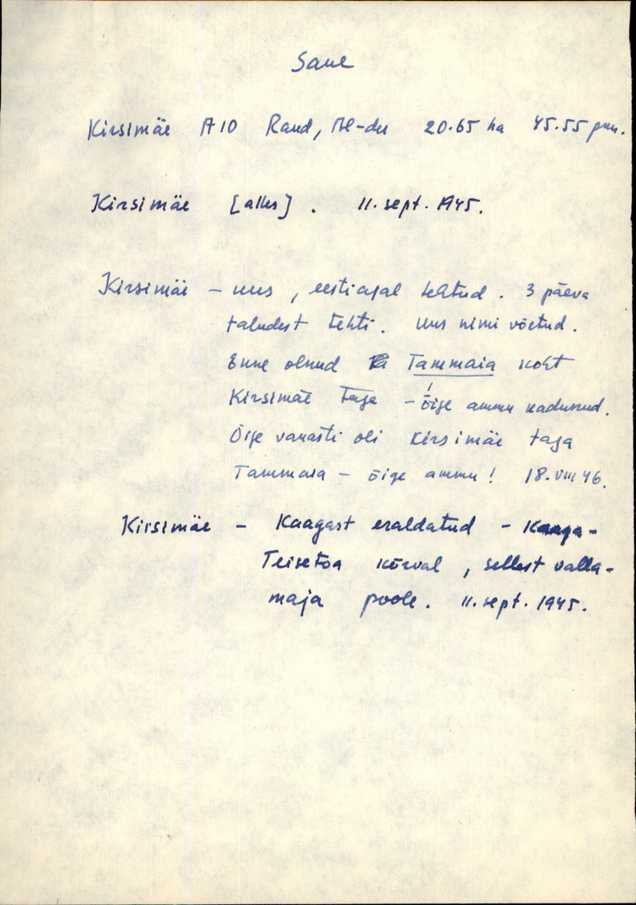 Saue
Kirsimäe A10 Rand, 20.65 ha 45.55 pun.
Kirsimäe [alles]. 11. sept. 1945.
Kirsimäe – uus, eestiajal tehtud. 3 päeva
taludest tehti. Uus nimi võetud.
Enne olnud Tammaia koht
Kirsimäe taga – õige ammu kadunud.
Õige vanasti oli Kirsimäe taga
Tammaia – õige ammu! 18. VIII 46.
Kirsimäe – Kaagast eraldatud – Kaaga-
Teisetoa kõrval, sellest valla-
maja poole. 11. sept. 1945.